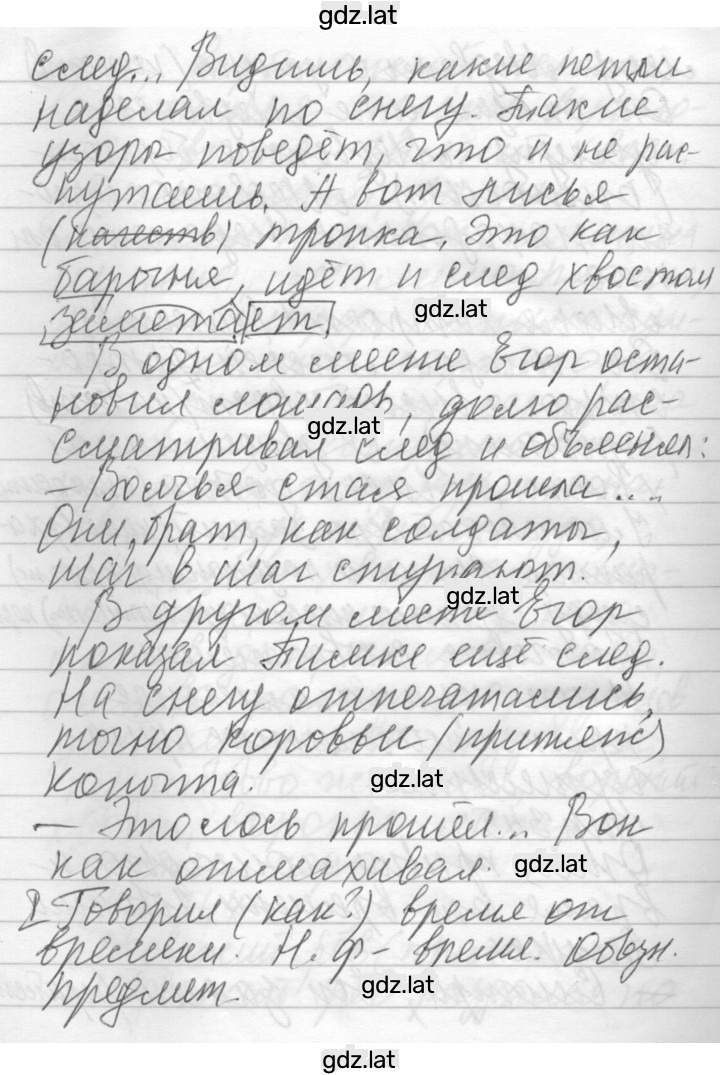 gdz.lat
след... Видишь, какие петли
наделал по снегу. Такие
узоры поведёт, что и не рас-
путаешь. А вот лисья
(качеств) тропка. Это как
барыня, идёт и след хвостом
gdz.lat
заметает.
В одном месте Егор оста-
новил лошадь, долго рас-
gdz.lat
сматривал след и объяснял:
- Волчья стая прошла...
Они, брат, как солдаты,
шаг в шаг ступают.
gdz.lat
В другом месте Егор
показал Тимке ещё след.
На снегу отпечатались,
точно коровьи (притяж)
копыта.
gdz.lat
- Это лось прошёл... Вон
как отмахивал.
gdz.lat
I Говорил (как?) время от
времени. Н. ф - время. Обозн.
предмет
gdz.lat
gdz.lat